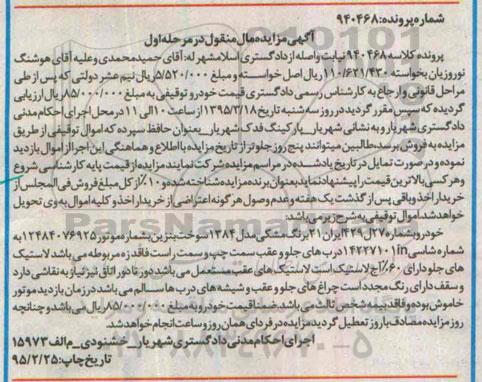 شماره پرونده: ۹۴۰۴۶۸
آگهی مزایده مال منقول در مرحله اول
پرونده کلاسه ۹۴۰۴۶۸ نیابت واصله از دادگستری اسلامشهر له: آقای حمید محمدی و علیه آقای هوشنگ
نوروزیان بخواسته ۱۱۰/۶۲۱/۴۳۰ ریال اصل خواسته و مبلغ ۵/۵۲۰/۰۰۰ ریال نیم عشر دولتی که پس از طی
مراحل قانونی و ارجاع به کارشناس رسمی دادگستری قیمت خودرو توقیفی به مبلغ ۸۵/۰۰۰/۰۰۰ ریال ارزیابی
گردیده که سپس مقرر گردید در روز سه شنبه تاریخ ۱۳۹۵/۳/۱۸ از ساعت ۱۰ الی ۱۱ در محل اجرای احکام مدنی
دادگستری شهریار و به نشانی شهریار_ پارکینگ فدک شهریار_ بعنوان حافظ سپرده که اموال توقیفی از طریق
مزایده به فروش برسد. طالبین میتوانند پنج روز جلوتر از تاریخ مزایده با اطلاع و هماهنگی این اجرا از اموال بازدید
نموده و در صورت تمایل در تاریخ یاد شده در مراسم مزایده شرکت نمایند مزایده از قیمت پایه کارشناسی شروع
و هر کسی بالاترین قیمت را پیشنهاد نماید بعنوان برنده مزایده شناخته شده و ۱۰٪ از کل مبلغ فروش فی المجلس از
خریدار اخذ و باقی پس از گذشت یک هفته و عدم وصول هر گونه اعتراضی از خریدار اخذ و کلیه اموال به وی تحویل
خواهد شد. اموال توقیفی به شرح زیر می باشد:
خودرو بشماره ۲۷ل۴۲۹ ایران ۲۱ برنگ مشکی مدل ۱۳۸۴ سوخت بنزین بشماره موتور ۱۲۴۸۴۰۷۶۹۲۵ به
شماره شاسی ۱۴۲۲۷۱۰۱in درب های جلو و عقب سمت چپ و سمت راست فاقد زه مربوطه می باشد لاستیک
های جلو دارای ۶۰٪ آج لاستیک است لاستیک های عقب مستعمل می باشد دور تا دور اتاق نیز نیاز به نقاشی دارد
و سقف دارای رنگ مجدد است چراغ های جلو و عقب و شیشه های درب ها سالم می باشد در زمان بازدید موتور
خاموش بوده و فاقد بیمه شخص ثالث می باشد. ضمنا قیمت خودرو به مبلغ ۸۵/۰۰۰/۰۰۰ ریال می باشد و چنانچه
روز مزایده مصادف با روز تعطیل گردید مزایده در فردای همان روز و ساعت انجام خواهد شد.
اجرای احکام مدنی دادگستری شهریار_ خشنودی_ م الف ۱۵۹۷۳
تاریخ چاپ: ۹۵/۲/۲۵